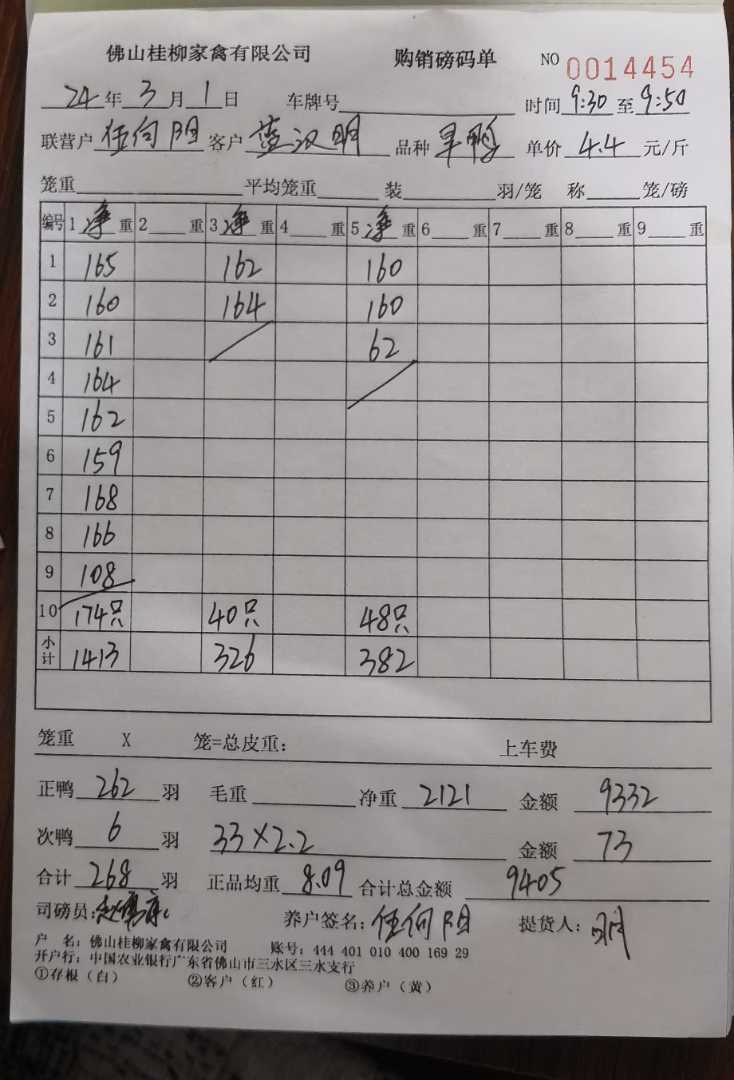 佛山桂柳家禽有限公司 购销磅码单 NO 0014454
24年3月1日 车牌号 时间9:30至9:50
联营户 伍向阳 客户 蓝汉明 品种 旱鸭 单价 4.4 元/斤
笼重 平均笼重 装 羽/笼 称 笼/磅
编号 1净重 2 重 3净重 4 重 5净重 6 重 7 重 8 重 9 重
1 165 162 160
2 160 164 160
3 161 62
4 164
5 162
6 159
7 168
8 166
9 108
10 174只 40只 48只
小计 1413 326 382
笼重 X 笼=总皮重: 上车费
正鸭 262 羽 毛重 净重 2121 金额 9332
次鸭 6 羽 33×2.2 金额 73
合计 268 羽 正品均重 8.09 合计总金额 9405
司磅员: 养户签名: 伍向阳 提货人: 明
户 名: 佛山桂柳家禽有限公司 账号: 444 401 010 400 169 29
开户行: 中国农业银行广东省佛山市三水区三水支行
①存根(白) ②客户(红) ③养户(黄)